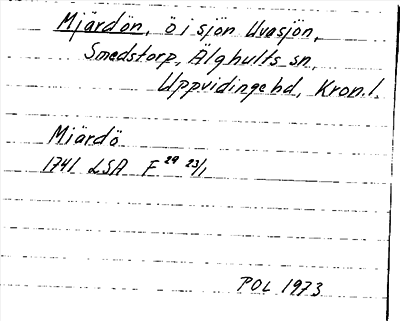 Mjärdön, ö i sjön Uvasjön,
Smedstorp, Älghults sn,
Uppvidinge hd, Kron.l.
Mjärdö
1741 LSA F 29 23/1
POL 1973